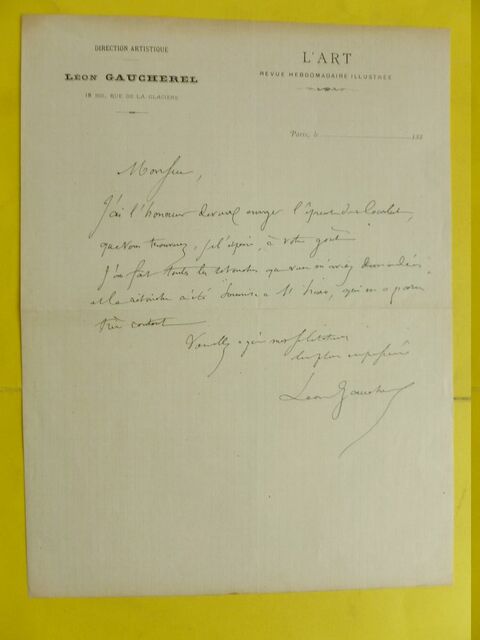 DIRECTION ARTISTIQUE
LÉON GAUCHEREL
18 BIS, RUE DE LA GLACIÈRE
L'ART
REVUE HEBDOMADAIRE ILLUSTRÉE
Paris, le 188
Monsieur,
J'ai l'honneur de vous envoyer l'épreuve du
que vous trouverez, je l'espère, à votre goût
J'ai fait toutes les retouches que vous m'aviez demandées,
et la retouche a été soumise à M. qui en a paru
très content
Veuillez agréer mes salutations
les plus empressées
Léon Gaucherel